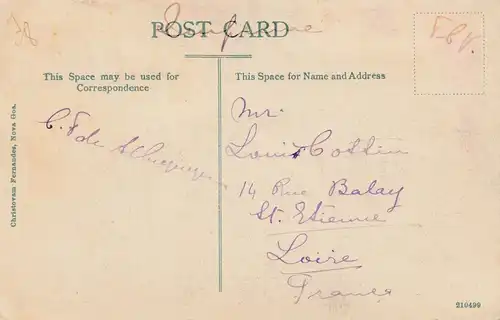 POST CARD
This Space may be used for
Correspondence
This Space for Name and Address
C. F. de
Mr.
Louis Cottin
14 Rue Balay
St. Etienne
Loire
France
Christovam Fernandes, Nova Goa.
210499